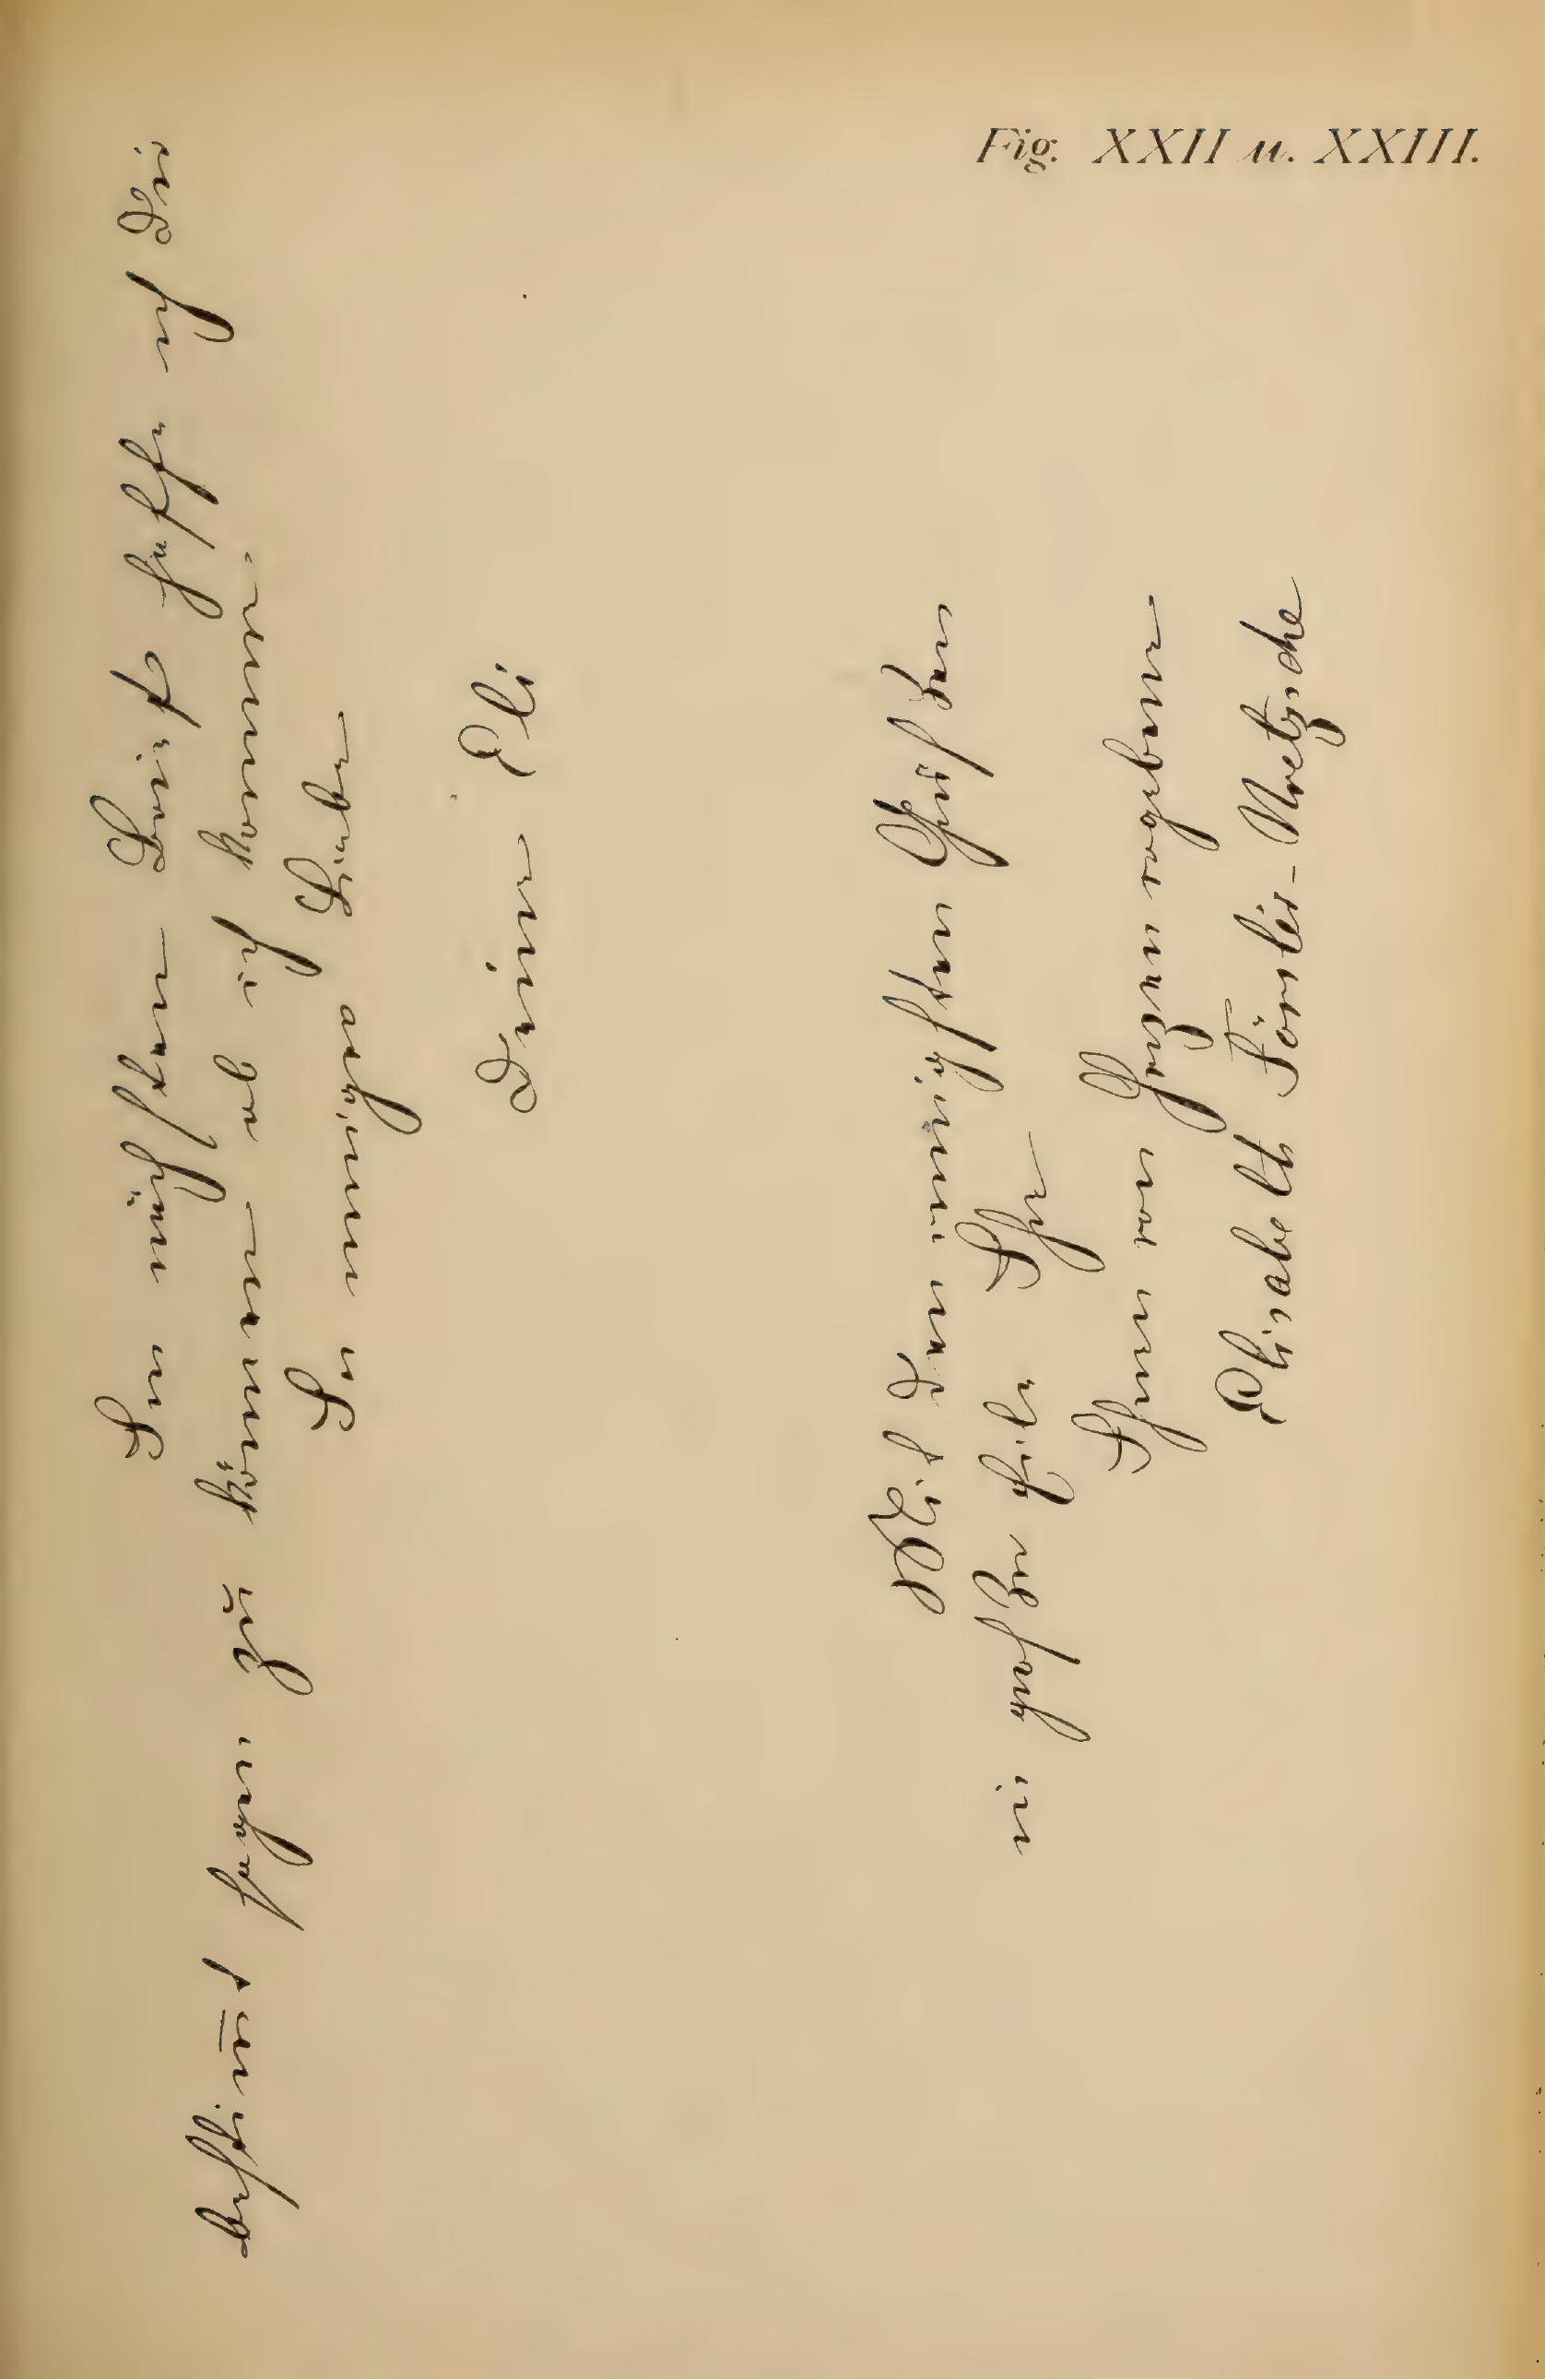 Fig. XXII u. XXIII.
Im nächsten Brief hoffe ich Dir
bestimt sagen zu können ob ich komme.
In inniger Liebe
Deine Eli
Mit den innigsten Grüßen
in großer Eile Ihre
Ihnen von Herzen ergebene
Elisabeth Förster-Nietzsche